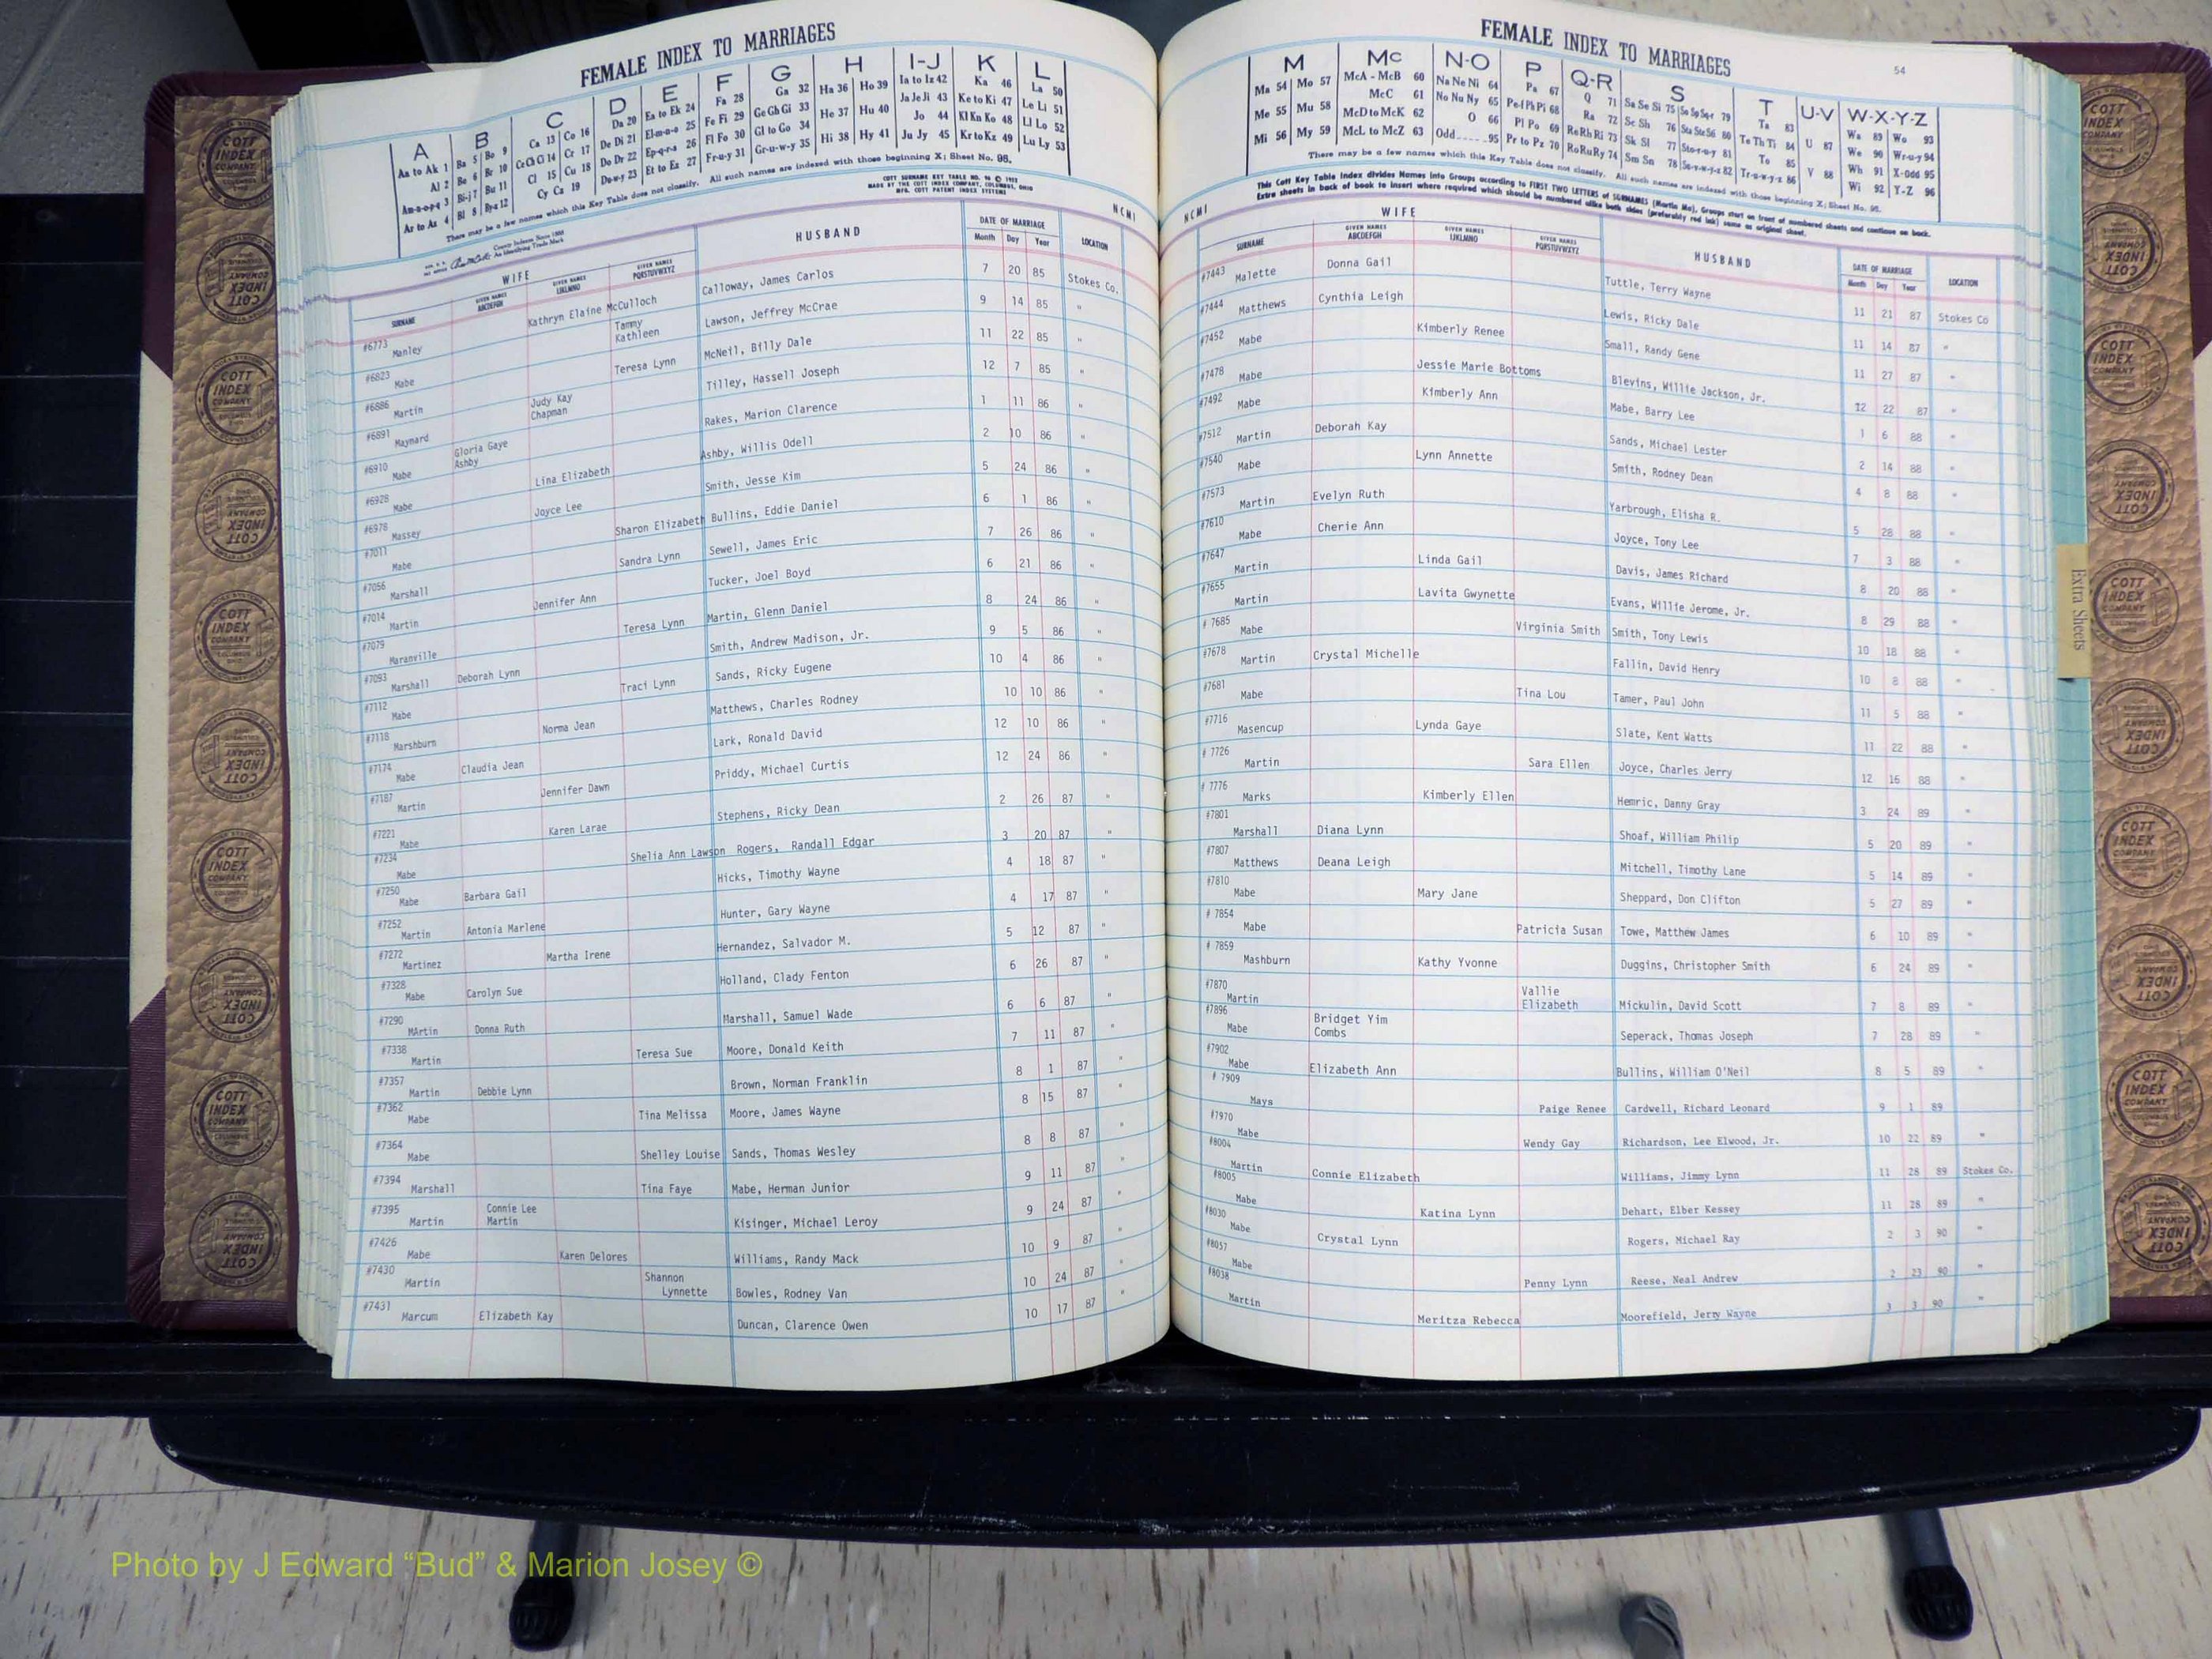 FEMALE INDEX TO MARRIAGES
A B C D E F G H I-J K L
Aa to Ak 1 Ba 5 Bo 9 Ca 13 Co 16 Da 20 Ea to Ek 24 Fa 28 Ga 32 Ha 36 Ho 39 Ia to Iz 42 Ka 46 La 50
Al 2 Be 6 Br 10 Ce Ch Ci 14 Cr 17 De Di 21 El-m-n-o 25 Fe Fi 29 Ge Gh Gi 33 He 37 Hu 40 Ja Je Ji 43 Ke to Ki 47 Le Li 51
Am-n-o-p-q 3 Bi-j 7 Bu 11 Cl 15 Cu 18 Do Dr 22 Ep-q-r-s 26 Fl Fo 30 Gl to Go 34 Hi 38 Hy 41 Jo 44 Kl Kn Ko 48 Ll Lo 52
Ar to Az 4 Bl 8 By-z 12 Cy Cz 19 Du-w-y 23 Et to Ez 27 Fr-u-y 31 Gr-u-w-y 35 Ju Jy 45 Kr to Kz 49 Lu Ly 53
There may be a few names which this Key Table does not classify. All such names are indexed with those beginning X; Sheet No. 95.
COTT SURNAME KEY TABLE
MADE BY THE COTT INDEX COMPANY, COLUMBUS, OHIO
NCMI
WIFE HUSBAND DATE OF MARRIAGE LOCATION
SURNAME GIVEN NAMES ABCDEFGH GIVEN NAMES IJKLMNO GIVEN NAMES PQRSTUVWXYZ Month Day Year
#6773 Manley Kathryn Elaine McCulloch Calloway, James Carlos 7 20 85 Stokes Co.
#6823 Mabe Tammy Kathleen Lawson, Jeffrey McCrae 9 14 85 "
#6886 Martin Teresa Lynn McNeil, Billy Dale 11 22 85 "
#6891 Maynard Judy Kay Chapman Tilley, Hassell Joseph 12 7 85 "
#6910 Mabe Gloria Gaye Ashby Rakes, Marion Clarence 1 11 86 "
#6928 Mabe Lina Elizabeth Ashby, Willis Odell 2 10 86 "
#6978 Massey Joyce Lee Smith, Jesse Kim 5 24 86 "
#7011 Mabe Sharon Elizabeth Bullins, Eddie Daniel 6 1 86 "
#7056 Marshall Sandra Lynn Sewell, James Eric 7 26 86 "
#7014 Martin Jennifer Ann Tucker, Joel Boyd 6 21 86 "
#7079 Maranville Teresa Lynn Martin, Glenn Daniel 8 24 86 "
#7093 Marshall Deborah Lynn Smith, Andrew Madison, Jr. 9 5 86 "
#7112 Mabe Traci Lynn Sands, Ricky Eugene 10 4 86 "
#7118 Marshburn Norma Jean Matthews, Charles Rodney 10 10 86 "
#7174 Mabe Claudia Jean Lark, Ronald David 12 10 86 "
#7187 Martin Jennifer Dawn Priddy, Michael Curtis 12 24 86 "
#7221 Mabe Karen Larae Stephens, Ricky Dean 2 26 87 "
#7234 Mabe Shelia Ann Lawson Rogers, Randall Edgar 3 20 87 "
#7250 Mabe Barbara Gail Hicks, Timothy Wayne 4 18 87 "
#7252 Martin Antonia Marlene Hunter, Gary Wayne 4 17 87 "
#7272 Martinez Martha Irene Hernandez, Salvador M. 5 12 87 "
#7328 Mabe Carolyn Sue Holland, Clady Fenton 6 26 87 "
#7290 MArtin Donna Ruth Marshall, Samuel Wade 6 6 87 "
#7338 Martin Teresa Sue Moore, Donald Keith 7 11 87 "
#7357 Martin Debbie Lynn Brown, Norman Franklin 8 1 87 "
#7362 Mabe Tina Melissa Moore, James Wayne 8 15 87 "
#7364 Mabe Shelley Louise Sands, Thomas Wesley 8 8 87 "
#7394 Marshall Tina Faye Mabe, Herman Junior 9 11 87 "
#7395 Martin Connie Lee Martin Kisinger, Michael Leroy 9 24 87 "
#7426 Mabe Karen Delores Williams, Randy Mack 10 9 87 "
#7430 Martin Shannon Lynnette Bowles, Rodney Van 10 24 87 "
#7431 Marcum Elizabeth Kay Duncan, Clarence Owen 10 17 87 "
FEMALE INDEX TO MARRIAGES
54
M Mc N-O P Q-R S T U-V W-X-Y-Z
Ma 54 Mo 57 McA - McB 60 Na Ne Ni 64 Pa 67 Q 71 Sa Se Si 75 So Sp Sq-r 79 Ta 83 U 87 Wa 89 Wo 93
Me 55 Mu 58 McC 61 No Nu Ny 65 Pe-f Ph Pi 68 Ra 72 Sc Sh 76 Ss Ste St 80 Te Th Ti 84 V 88 We 90 Wr-u-y 94
Mi 56 My 59 McD to McK 62 O 66 Pl Po 69 Re Rh Ri 73 Sk Sl 77 Sto-r-u-y 81 To 85 Wh 91 X-Odd 95
McL to McZ 63 Odd 95 Pr to Pz 70 Ro Ru Ry 74 Sm Sn 78 Su-v-w-y-z 82 Tr-u-w-y-z 86 Wi 92 Y-Z 96
There may be a few names which this Key Table does not classify. All such names are indexed with those beginning X; Sheet No. 95.
This Cott Key Table Index divides Names into Groups according to FIRST TWO LETTERS of SURNAMES (Martin Ma), Groups start on front of numbered sheets and continue on back.
Extra sheets in back of book to insert where required which should be numbered alike both sides (preferably red ink) same as original sheet.
NCMI
WIFE HUSBAND DATE OF MARRIAGE LOCATION
SURNAME GIVEN NAMES ABCDEFGH GIVEN NAMES IJKLMNO GIVEN NAMES PQRSTUVWXYZ Month Day Year
#7443 Malette Donna Gail Tuttle, Terry Wayne 11 21 87 Stokes Co
#7444 Matthews Cynthia Leigh Lewis, Ricky Dale 11 14 87 "
#7452 Mabe Kimberly Renee Small, Randy Gene 11 27 87 "
#7478 Mabe Jessie Marie Bottoms Blevins, Willie Jackson, Jr. 12 22 87 "
#7492 Mabe Kimberly Ann Mabe, Barry Lee 1 6 88 "
#7512 Martin Deborah Kay Sands, Michael Lester 2 14 88 "
#7540 Mabe Lynn Annette Smith, Rodney Dean 4 8 88 "
#7573 Martin Evelyn Ruth Yarbrough, Elisha R. 5 28 88 "
#7610 Mabe Cherie Ann Joyce, Tony Lee 7 3 88 "
#7647 Martin Linda Gail Davis, James Richard 8 20 88 "
#7655 Martin Lavita Gwynette Evans, Willie Jerome, Jr. 8 29 88 "
# 7685 Mabe Virginia Smith Smith, Tony Lewis 10 18 88 "
#7678 Martin Crystal Michelle Fallin, David Henry 10 8 88 "
#7681 Mabe Tina Lou Tamer, Paul John 11 5 88 "
#7716 Masencup Lynda Gaye Slate, Kent Watts 11 22 88 "
# 7726 Martin Sara Ellen Joyce, Charles Jerry 12 16 88 "
# 7776 Marks Kimberly Ellen Hemric, Danny Gray 3 24 89 "
#7801 Marshall Diana Lynn Shoaf, William Philip 5 20 89 "
#7807 Matthews Deana Leigh Mitchell, Timothy Lane 5 14 89 "
#7810 Mabe Mary Jane Sheppard, Don Clifton 5 27 89 "
# 7854 Mabe Patricia Susan Towe, Matthew James 6 10 89 "
# 7859 Mashburn Kathy Yvonne Duggins, Christopher Smith 6 24 89 "
#7870 Martin Vallie Elizabeth Mickulin, David Scott 7 8 89 "
#7896 Mabe Bridget Yim Combs Seperack, Thomas Joseph 7 28 89 "
#7902 Mabe Elizabeth Ann Bullins, William O'Neil 8 5 89 "
# 7909 Mays Paige Renee Cardwell, Richard Leonard 9 1 89
#7970 Mabe Wendy Gay Richardson, Lee Elwood, Jr. 10 22 89 "
#8004 Martin Connie Elizabeth Williams, Jimmy Lynn 11 28 89 Stokes Co.
#8005 Mabe Katina Lynn Dehart, Elber Kessey 11 28 89 "
#8030 Mabe Crystal Lynn Rogers, Michael Ray 2 3 90 "
#8057 Mabe Penny Lynn Reese, Neal Andrew 2 23 90 "
#8038 Martin Meritza Rebecca Moorefield, Jerry Wayne 3 3 90 "
Extra Sheets
COTT INDEX COMPANY
Photo by J Edward “Bud” & Marion Josey ©